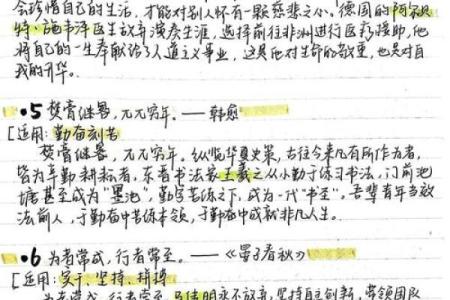 会珍惜自己的生活,才能对别人怀有一颗慈悲之心。德国的阿尔贝
特·施韦泽医生放弃演奏生涯,选择前往非洲进行医疗援助,他
将自己的一生奉献给了人道主义事业,这是他对生命的敬重,也是对自
我的升华。
•5 焚膏继晷,兀兀穷年。——韩愈
[适用:勤奋刻苦
焚膏继晷,兀兀穷年。纵览华夏史策,古往今来凡有所作为者,
皆为辛勤耕耘者,东晋书法家王羲之从小勤于练习书法,门前池
塘甚至成为“墨池”,勤学苦练之下,成为一代“书圣”。吾辈青年当效
法前人,于勤奋中苦练本领,于勤奋中成就非凡人生。
•6 为者常成,行者常至。——《晏子春秋》
[适用:实干、坚持、拼搏
为者常成,行者常至。 永不放弃,坚持自主创新,带领团队